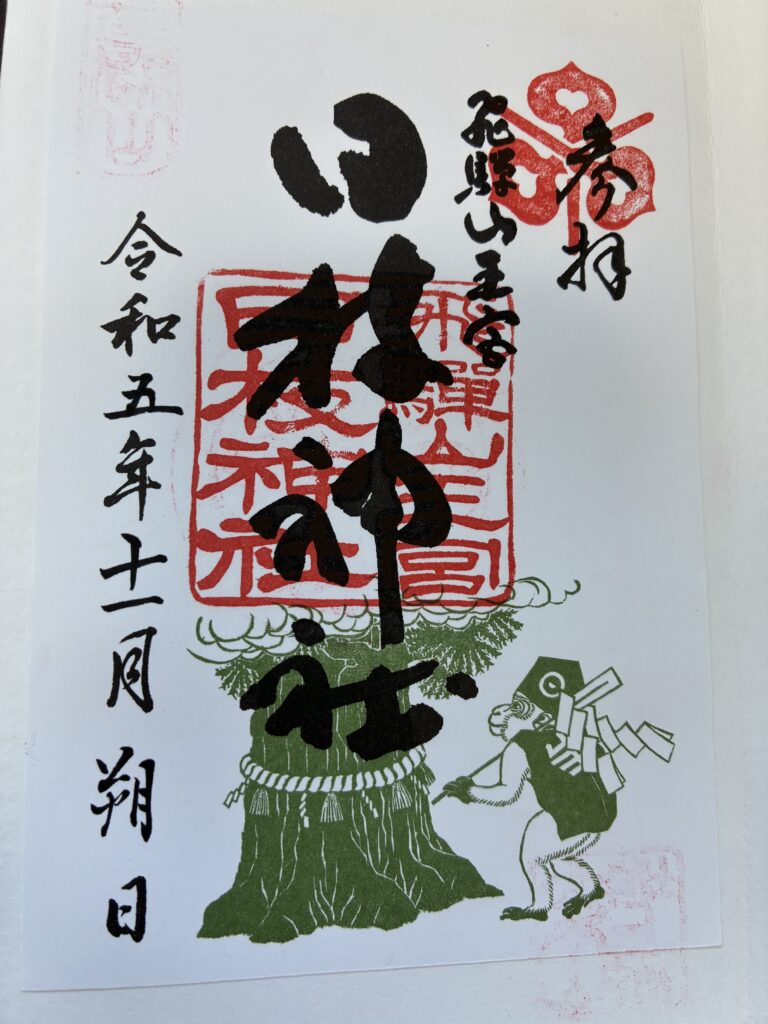 参拝
飛騨山王宮
日枝神社
飛騨山王宮
日枝神社
令和五年十一月朔日